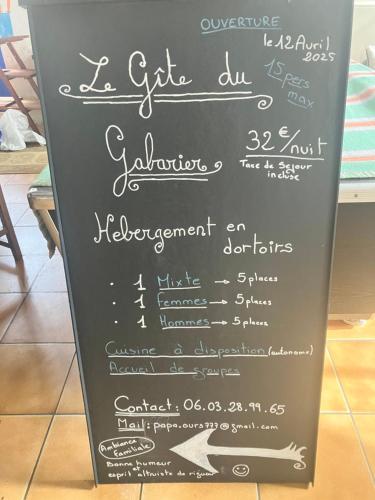 OUVERTURE
le 12 Avril
2025
Le Gîte du
15 pers
max
Gabarier
32 €/nuit
Taxe de Sejour
incluse
Hebergement en
dortoirs
· 1 Mixte → 5 places
· 1 Femmes → 5 places
· 1 Hommes → 5 places
Cuisine à disposition (autonome)
Accueil de groupes
Contact : 06.03.28.99.65
Mail : papa.ours777@gmail.com
Ambiance
Familiale
Bonne humeur
et
esprit altruiste de rigueur